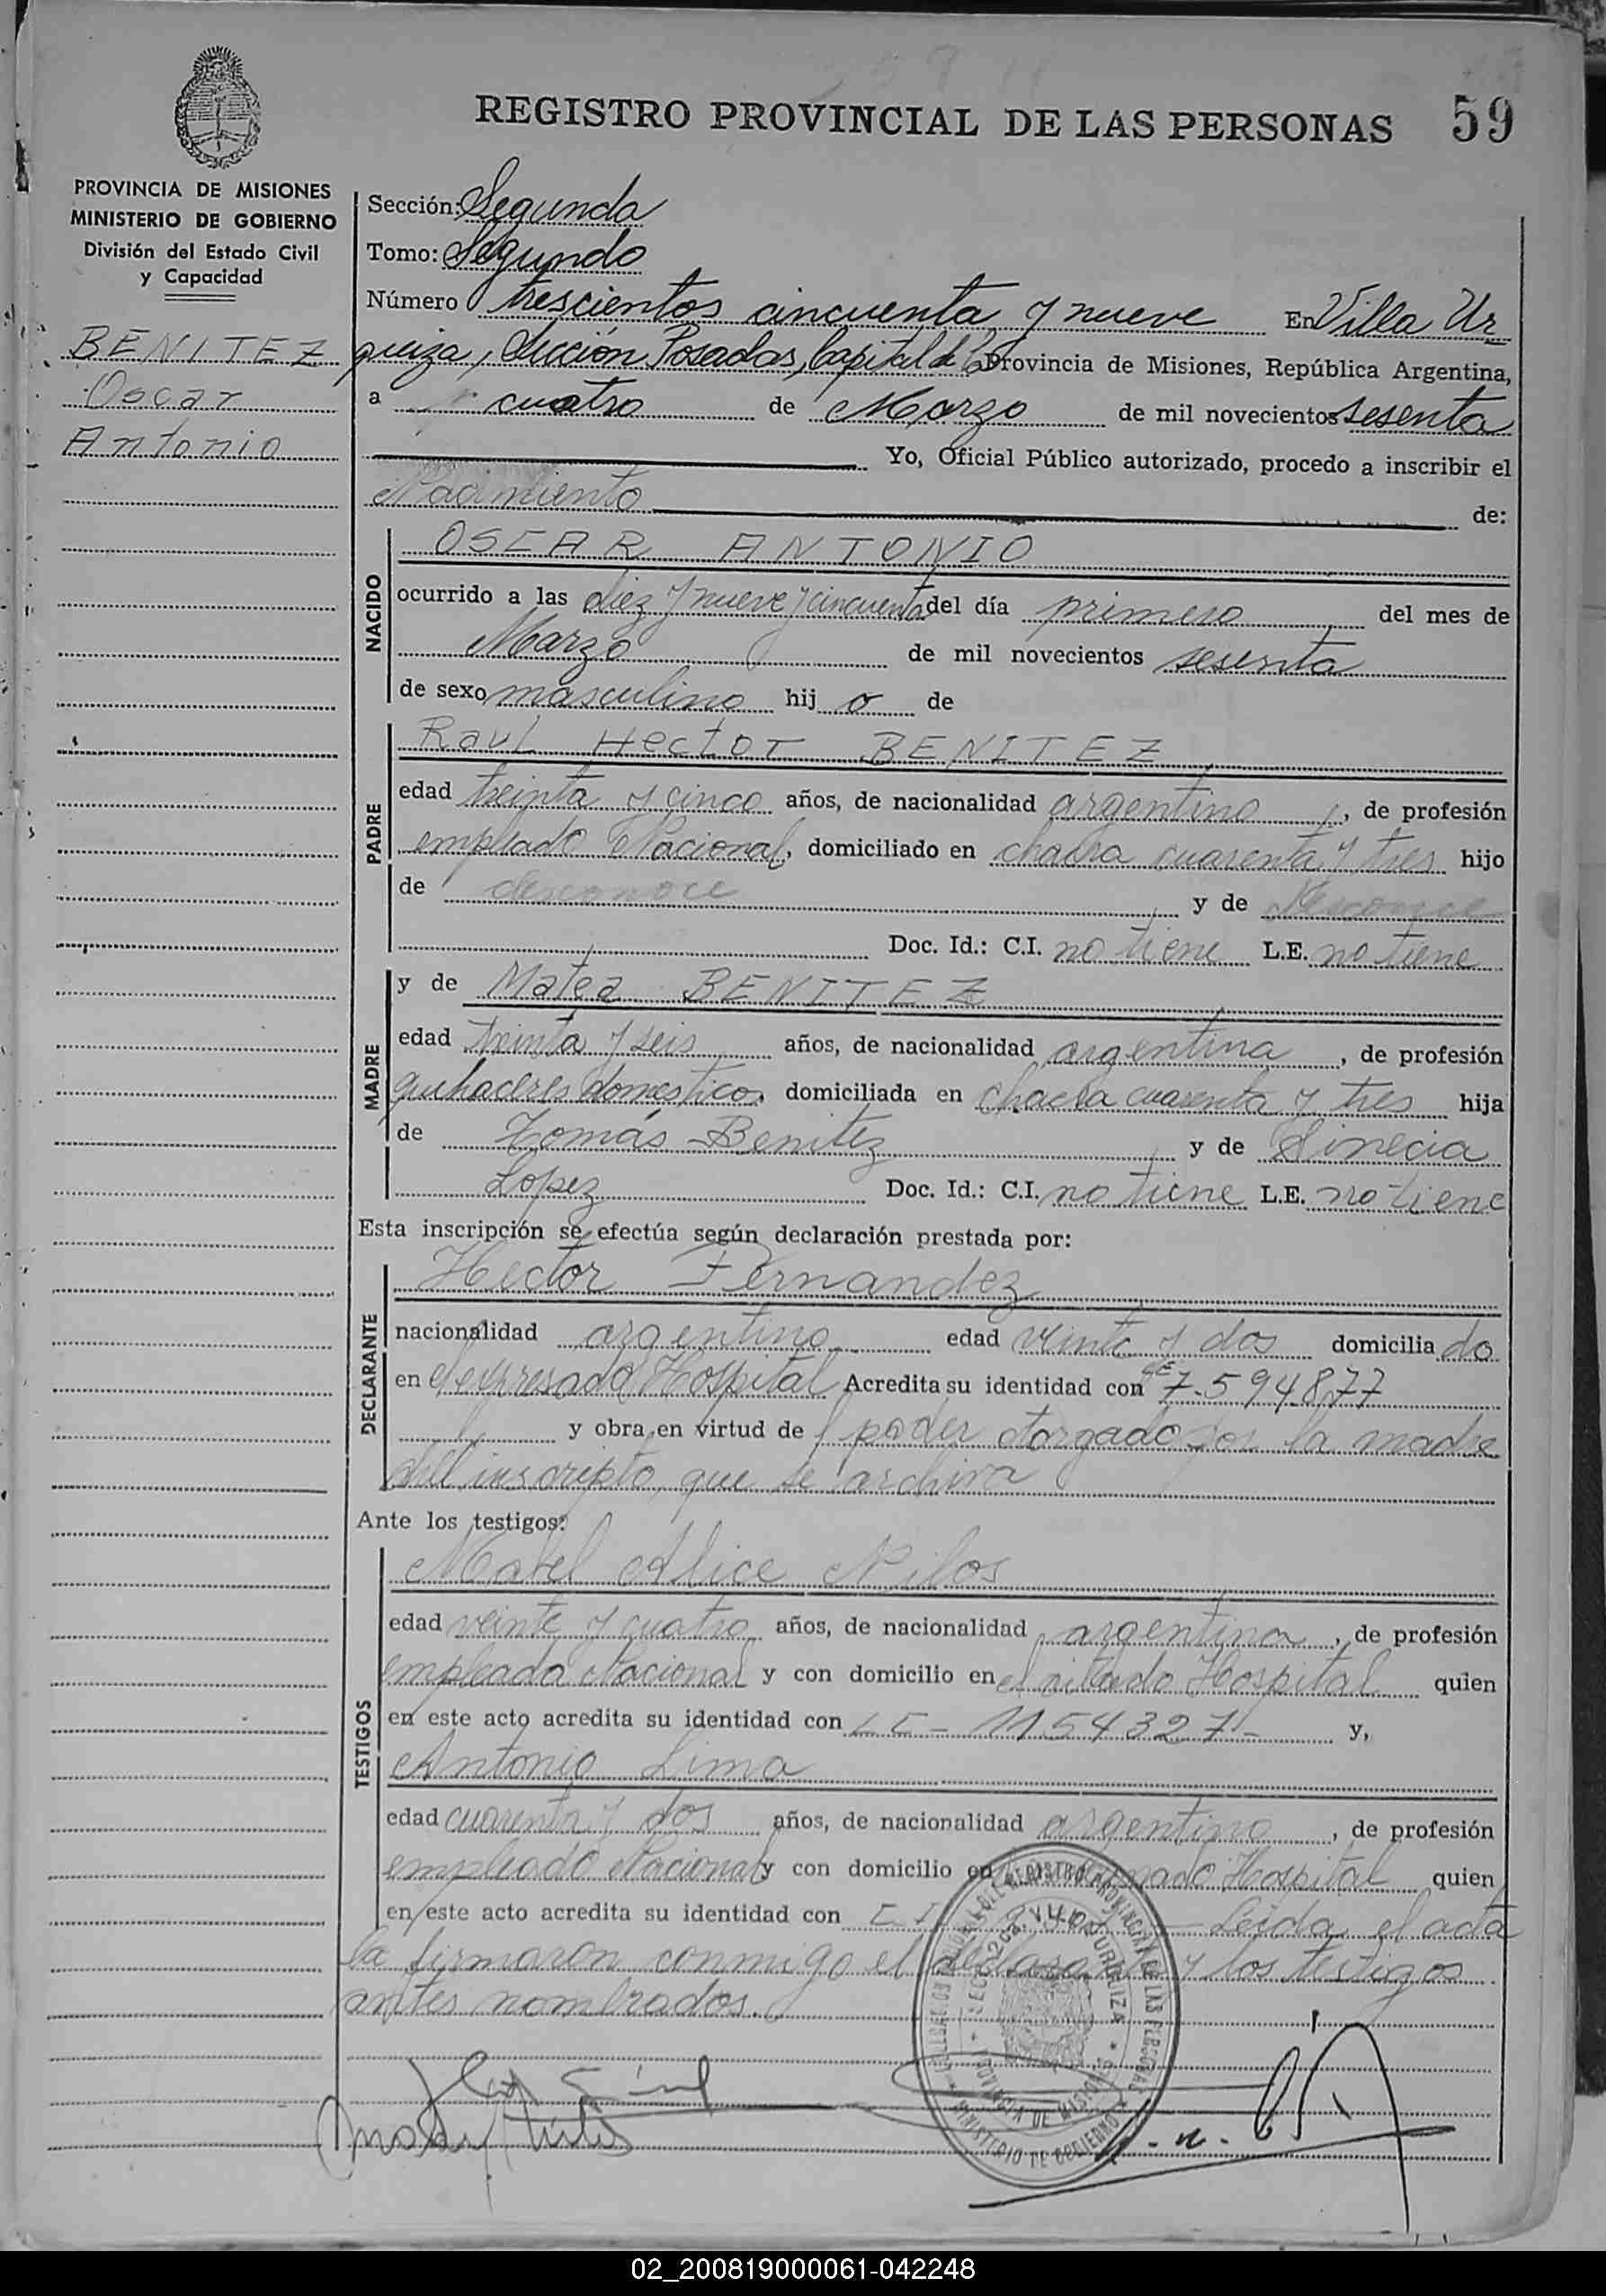 REGISTRO PROVINCIAL DE LAS PERSONAS 59
PROVINCIA DE MISIONES
MINISTERIO DE GOBIERNO
División del Estado Civil
y Capacidad
BENITEZ
Oscar
Antonio
Sección: Segunda
Tomo: Segundo
Número trescientos cincuenta y nueve En Villa Ur
quiza, Sección Posadas, Capital de la Provincia de Misiones, República Argentina,
a cuatro de Marzo de mil novecientos sesenta
Yo, Oficial Público autorizado, procedo a inscribir el
Nacimiento de:
NACIDO
OSCAR ANTONIO
ocurrido a las diez y nueve y cincuenta del día primero del mes de
Marzo de mil novecientos sesenta
de sexo masculino hij o de
PADRE
Raul Hector BENITEZ
edad treinta y cinco años, de nacionalidad argentino, de profesión
empleado Nacional, domiciliado en chacra cuarenta y tres hijo
de desconoce y de desconoce
Doc. Id.: C.I. no tiene L.E. no tiene
MADRE
y de Matea BENITEZ
edad treinta y seis años, de nacionalidad argentina, de profesión
quehaceres domesticos domiciliada en chacra cuarenta y tres hija
de Tomás Benitez y de Sinecia
Lopez Doc. Id.: C.I. no tiene L.E. no tiene
Esta inscripción se efectúa según declaración prestada por:
DECLARANTE
Hector Fernandez
nacionalidad argentino edad veinte y dos domicilia do
en el expresado Hospital Acredita su identidad con LE 7.594.877
y obra en virtud de poder otorgado por la madre
del inscripto, que se archiva
Ante los testigos:
TESTIGOS
Mabel Alice Nilos
edad veinte y cuatro años, de nacionalidad argentina, de profesión
empleada Nacional y con domicilio en el citado Hospital quien
en este acto acredita su identidad con LC - 1154327 - y,
Antonio Lima
edad cuarenta y dos años, de nacionalidad argentino, de profesión
empleado Nacional y con domicilio en Hospital quien
en este acto acredita su identidad con CI Leida el acta
la firmaron conmigo el declarante y los testigos
antes nombrados.
REGISTRO PROVINCIAL DE LAS PERSONAS
VILLA URQUIZA
PROVINCIA DE MISIONES
MINISTERIO DE GOBIERNO
02_200819000061-042248